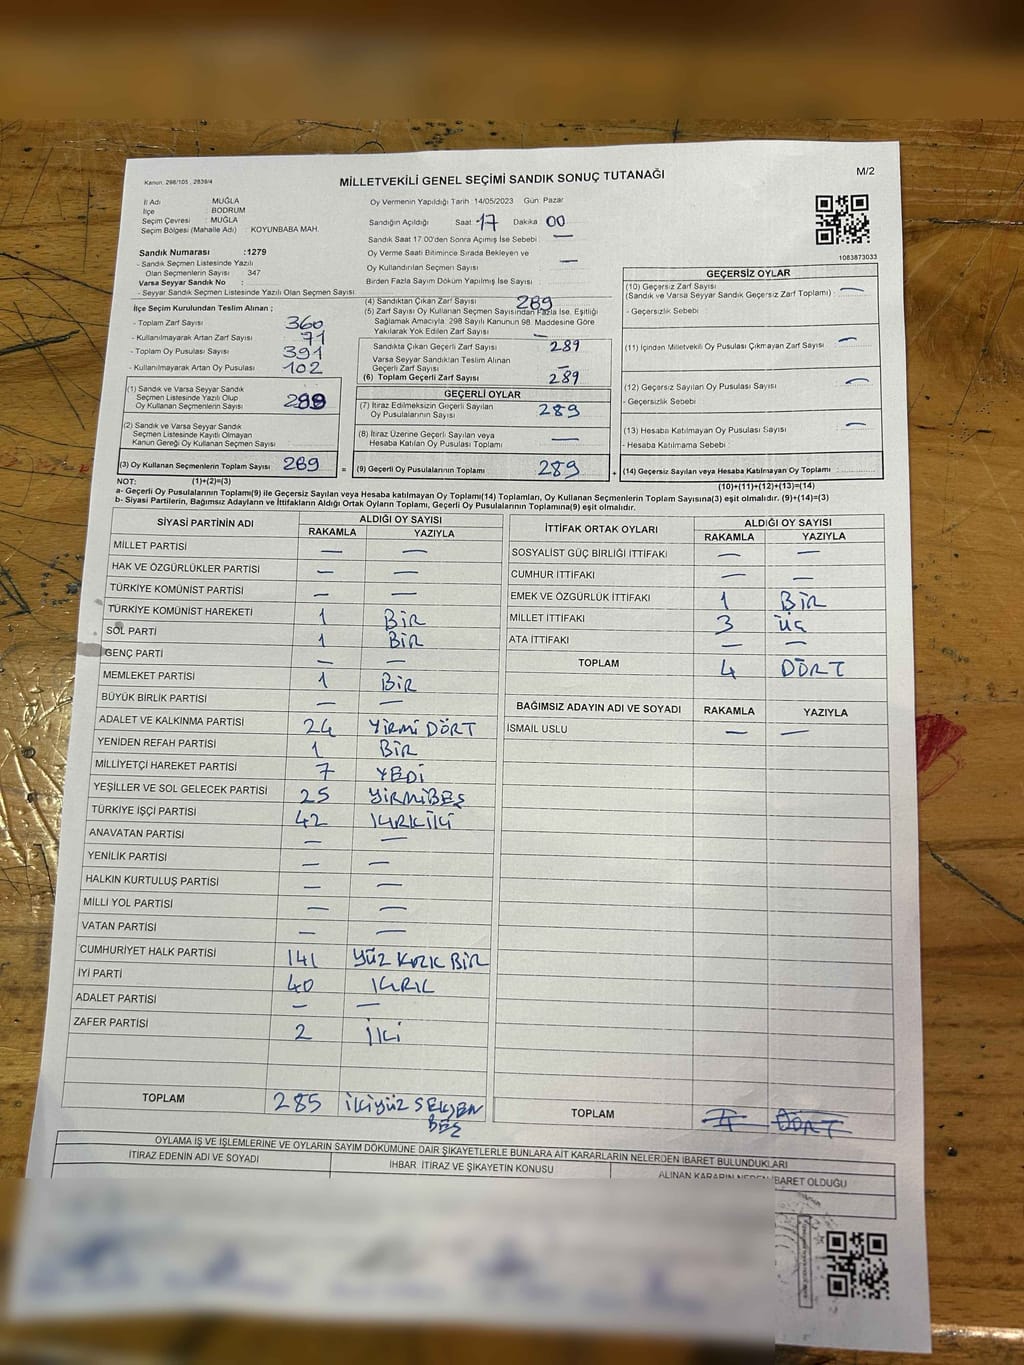 Kanun. 298/105 , 2839/4
MİLLETVEKİLİ GENEL SEÇİMİ SANDIK SONUÇ TUTANAĞI
M/2
İl Adı : MUĞLA
İlçe : BODRUM
Seçim Çevresi : MUĞLA
Seçim Bölgesi (Mahalle Adı) : KOYUNBABA MAH.
Oy Vermenin Yapıldığı Tarih : 14/05/2023 Gün: Pazar
Sandığın Açıldığı Saat: 17 Dakika 00
Sandık Saat 17:00'den Sonra Açılmış İse Sebebi : —
Oy Verme Saati Bitimince Sırada Bekleyen ve
Oy Kullandırılan Seçmen Sayısı : —
Birden Fazla Sayım Döküm Yapılmış İse Sayısı
1083873033
Sandık Numarası :1279
- Sandık Seçmen Listesinde Yazılı
Olan Seçmenlerin Sayısı : 347
Varsa Seyyar Sandık No :
- Seyyar Sandık Seçmen Listesinde Yazılı Olan Seçmen Sayısı:
İlçe Seçim Kurulundan Teslim Alınan ;
- Toplam Zarf Sayısı : 360
- Kullanılmayarak Artan Zarf Sayısı : 71
- Toplam Oy Pusulası Sayısı : 391
- Kullanılmayarak Artan Oy Pusulası Sayısı : 102
(1) Sandık ve Varsa Seyyar Sandık
Seçmen Listesinde Yazılı Olup
Oy Kullanan Seçmenlerin Sayısı : 289
(2) Sandık ve Varsa Seyyar Sandık
Seçmen Listesinde Kayıtlı Olmayan
Kanun Gereği Oy Kullanan Seçmen Sayısı :
(3) Oy Kullanan Seçmenlerin Toplam Sayısı : 289 =
(4) Sandıktan Çıkan Zarf Sayısı : 289
(5) Zarf Sayısı Oy Kullanan Seçmen Sayısından Fazla İse, Eşitliği
Sağlamak Amacıyla; 298 Sayılı Kanunun 98. Maddesine Göre
Yakılarak Yok Edilen Zarf Sayısı : —
Sandıkta Çıkan Geçerli Zarf Sayısı : 289
Varsa Seyyar Sandıktan Teslim Alınan
Geçerli Zarf Sayısı : —
(6) Toplam Geçerli Zarf Sayısı : 289
GEÇERLİ OYLAR
(7) İtiraz Edilmeksizin Geçerli Sayılan
Oy Pusulalarının Sayısı : 289
(8) İtiraz Üzerine Geçerli Sayılan veya
Hesaba Katılan Oy Pusulası Toplamı : —
(9) Geçerli Oy Pusulalarının Toplamı : 289 +
GEÇERSİZ OYLAR
(10) Geçersiz Zarf Sayısı
(Sandık ve Varsa Seyyar Sandık Geçersiz Zarf Toplamı) : —
- Geçersizlik Sebebi :
(11) İçinden Milletvekili Oy Pusulası Çıkmayan Zarf Sayısı : —
(12) Geçersiz Sayılan Oy Pusulası Sayısı : —
- Geçersizlik Sebebi :
(13) Hesaba Katılmayan Oy Pusulası Sayısı : —
- Hesaba Katılmama Sebebi :
(14) Geçersiz Sayılan veya Hesaba Katılmayan Oy Toplamı :
NOT: (1)+(2)=(3)
(10)+(11)+(12)+(13)=(14)
a- Geçerli Oy Pusulalarının Toplamı(9) ile Geçersiz Sayılan veya Hesaba katılmayan Oy Toplamı(14) Toplamları, Oy Kullanan Seçmenlerin Toplam Sayısına(3) eşit olmalıdır. (9)+(14)=(3)
b- Siyasi Partilerin, Bağımsız Adayların ve İttifakların Aldığı Ortak Oyların Toplamı, Geçerli Oy Pusulalarının Toplamına(9) eşit olmalıdır.
SİYASİ PARTİNİN ADI ALDIĞI OY SAYISI
RAKAMLA YAZIYLA
MİLLET PARTİSİ — —
HAK VE ÖZGÜRLÜKLER PARTİSİ — —
TÜRKİYE KOMÜNİST PARTİSİ — —
TÜRKİYE KOMÜNİST HAREKETİ 1 BİR
SOL PARTİ 1 BİR
GENÇ PARTİ — —
MEMLEKET PARTİSİ 1 BİR
BÜYÜK BİRLİK PARTİSİ — —
ADALET VE KALKINMA PARTİSİ 24 YİRMİ DÖRT
YENİDEN REFAH PARTİSİ 1 BİR
MİLLİYETÇİ HAREKET PARTİSİ 7 YEDİ
YEŞİLLER VE SOL GELECEK PARTİSİ 25 YİRMİBEŞ
TÜRKİYE İŞÇİ PARTİSİ 42 KIRKİKİ
ANAVATAN PARTİSİ — —
YENİLİK PARTİSİ — —
HALKIN KURTULUŞ PARTİSİ — —
MİLLİ YOL PARTİSİ — —
VATAN PARTİSİ — —
CUMHURİYET HALK PARTİSİ 141 YÜZ KIRK BİR
İYİ PARTİ 40 KIRK
ADALET PARTİSİ — —
ZAFER PARTİSİ 2 İKİ
TOPLAM 285 İKİYÜZ SEKSEN
BEŞ
İTTİFAK ORTAK OYLARI ALDIĞI OY SAYISI
RAKAMLA YAZIYLA
SOSYALİST GÜÇ BİRLİĞİ İTTİFAKI — —
CUMHUR İTTİFAKI — —
EMEK VE ÖZGÜRLÜK İTTİFAKI 1 BİR
MİLLET İTTİFAKI 3 ÜÇ
ATA İTTİFAKI — —
TOPLAM 4 DÖRT
BAĞIMSIZ ADAYIN ADI VE SOYADI RAKAMLA YAZIYLA
İSMAİL USLU — —
TOPLAM 4 DÖRT
OYLAMA İŞ VE İŞLEMLERİNE VE OYLARIN SAYIM DÖKÜMÜNE DAİR ŞİKAYETLERLE BUNLARA AİT KARARLARIN NELERDEN İBARET BULUNDUKLARI
İTİRAZ EDENİN ADI VE SOYADI İHBAR İTİRAZ VE ŞİKAYETİN KONUSU ALINAN KARARIN NEDEN İBARET OLDUĞU